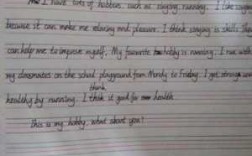 I have lots of hobbies, such as singing, running. I like singing
because it can make me relaxing and pleasure. I think singing is skill. They
can help me to improve myself. My favourite hobby is running. I run with
my classmates on the school playground from Monday to Friday. I get strong and
think
healthy by running. I think it good for health
This is my hobby, what about you?